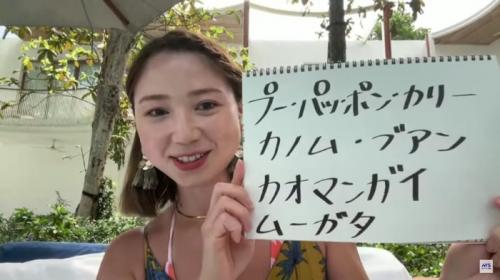 プーパッポンカリー
カノム・ブアン
カオマンガイ
ムーガタ